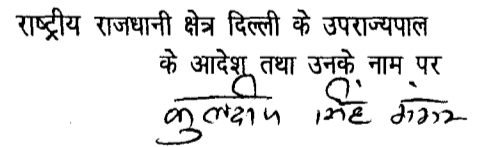 राष्ट्रीय राजधानी क्षेत्र दिल्ली के उपराज्यपाल
के आदेश तथा उनके नाम पर
कुलदीप सिंह गंगर